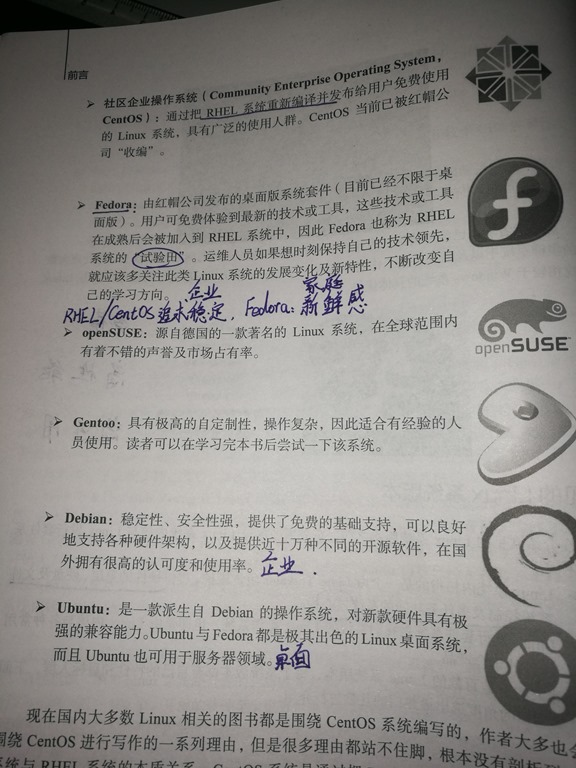 前言
➤ 社区企业操作系统（Community Enterprise Operating System，
CentOS）：通过把 RHEL 系统重新编译并发布给用户免费使用
的 Linux 系统，具有广泛的使用人群。CentOS 当前已被红帽公
司“收编”。
➤ Fedora：由红帽公司发布的桌面版系统套件（目前已经不限于桌
面版）。用户可免费体验到最新的技术或工具，这些技术或工具
在成熟后会被加入到 RHEL 系统中，因此 Fedora 也称为 RHEL
系统的“试验田”。运维人员如果想时刻保持自己的技术领先，
就应该多关注此类 Linux 系统的发展变化及新特性，不断改变自
己的学习方向。
企业 家庭
RHEL/CentOS 追求稳定，Fedora：新鲜感
➤ openSUSE：源自德国的一款著名的 Linux 系统，在全球范围内
有着不错的声誉及市场占有率。
openSUSE
➤ Gentoo：具有极高的自定制性，操作复杂，因此适合有经验的人
员使用。读者可以在学习完本书后尝试一下该系统。
➤ Debian：稳定性、安全性强，提供了免费的基础支持，可以良好
地支持各种硬件架构，以及提供近十万种不同的开源软件，在国
外拥有很高的认可度和使用率。企业.
➤ Ubuntu：是一款派生自 Debian 的操作系统，对新款硬件具有极
强的兼容能力。Ubuntu 与 Fedora 都是极其出色的 Linux 桌面系统，
而且 Ubuntu 也可用于服务器领域。桌面
现在国内大多数 Linux 相关的图书都是围绕 CentOS 系统编写的，作者大多也会
围绕 CentOS 进行写作的一系列理由，但是很多理由都站不住脚，根本没有剖析到
系统与 RHEL 系统的本质关系。CentOS 系统是通过把